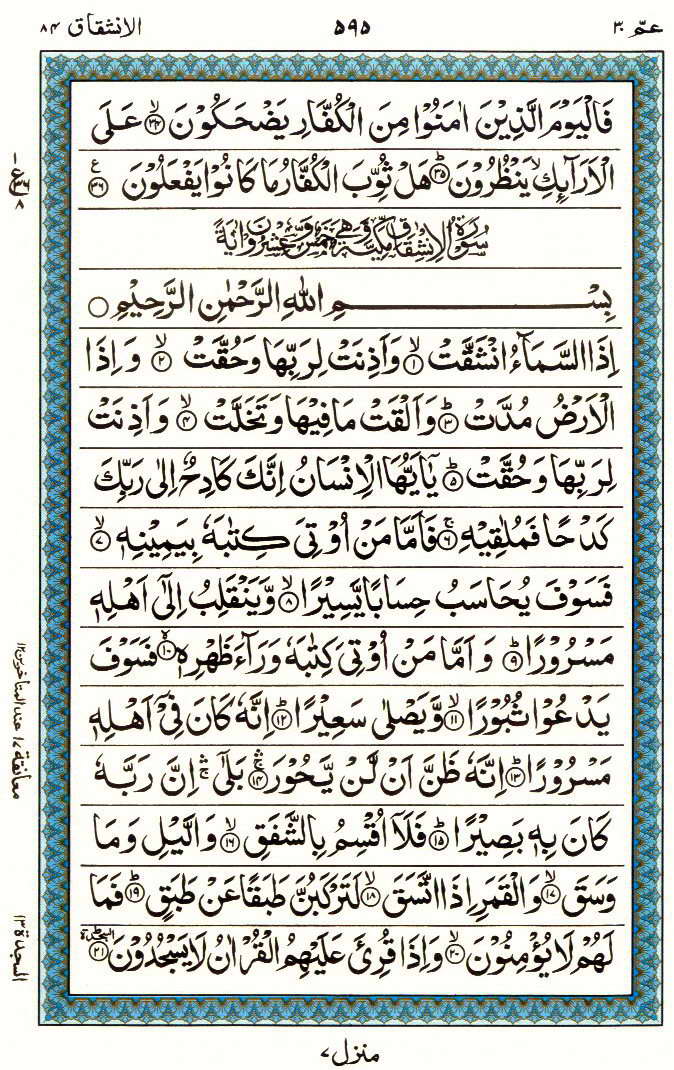 عمّ ۳۰
۵۹۵
الانشقاق ۸۴
فَالْيَوْمَ الَّذِيْنَ اٰمَنُوْا مِنَ الْكُفَّارِ يَضْحَكُوْنَ ﴿۳۴﴾ۙ عَلَى
الْاَرَآىِٕكِ ۙ يَنْظُرُوْنَ ﴿۳۵﴾ؕ هَلْ ثُوِّبَ الْكُفَّارُ مَا كَانُوْا يَفْعَلُوْنَ ﴿۳۶﴾ع
سُوْرَةُ الْاِنْشِقَاقِ مَكِّيَّةٌ وَّهِيَ خَمْسٌ وَّعِشْرُوْنَ اٰيَةً
بِسْـــــــــمِ اللّٰهِ الرَّحْمٰنِ الرَّحِيْمِ ○
اِذَا السَّمَآءُ انْشَقَّتْ ﴿۱﴾ۙ وَاَذِنَتْ لِرَبِّهَا وَحُقَّتْ ﴿۲﴾ۙ وَاِذَا
الْاَرْضُ مُدَّتْ ﴿۳﴾ؕ وَاَلْقَتْ مَا فِيْهَا وَتَخَلَّتْ ﴿۴﴾ۙ وَاَذِنَتْ
لِرَبِّهَا وَحُقَّتْ ﴿۵﴾ؕ يٰۤاَيُّهَا الْاِنْسَانُ اِنَّكَ كَادِحٌ اِلٰى رَبِّكَ
كَدْحًا فَمُلٰقِيْهِ ﴿۶﴾ۚ فَاَمَّا مَنْ اُوْتِيَ كِتٰبَهٗ بِيَمِيْنِهٖ ﴿۷﴾ۙ
فَسَوْفَ يُحَاسَبُ حِسَابًا يَّسِيْرًا ﴿۸﴾ۙ وَّيَنْقَلِبُ اِلٰۤى اَهْلِهٖ
مَسْرُوْرًا ﴿۹﴾ؕ وَاَمَّا مَنْ اُوْتِيَ كِتٰبَهٗ وَرَآءَ ظَهْرِهٖ ﴿۱۰﴾ۙ فَسَوْفَ
يَدْعُوْا ثُبُوْرًا ﴿۱۱﴾ۙ وَّيَصْلٰى سَعِيْرًا ﴿۱۲﴾ؕ اِنَّهٗ كَانَ فِيْۤ اَهْلِهٖ
مَسْرُوْرًا ﴿۱۳﴾ؕ اِنَّهٗ ظَنَّ اَنْ لَّنْ يَّحُوْرَ ﴿۱۴﴾ۛۚ بَلٰٓى ۛۚ اِنَّ رَبَّهٗ
كَانَ بِهٖ بَصِيْرًا ﴿۱۵﴾ؕ فَلَاۤ اُقْسِمُ بِالشَّفَقِ ﴿۱۶﴾ۙ وَالَّيْلِ وَمَا
وَسَقَ ﴿۱۷﴾ۙ وَالْقَمَرِ اِذَا اتَّسَقَ ﴿۱۸﴾ۙ لَتَرْكَبُنَّ طَبَقًا عَنْ طَبَقٍ ﴿۱۹﴾ؕ فَمَا
لَهُمْ لَا يُؤْمِنُوْنَ ﴿۲۰﴾ۙ وَاِذَا قُرِئَ عَلَيْهِمُ الْقُرْاٰنُ لَا يَسْجُدُوْنَ ﴿۲۱﴾ السجدة
معانقة ۱۷ عند المتاخرين ۱۲
السجدة ۱۳
منزل ۷